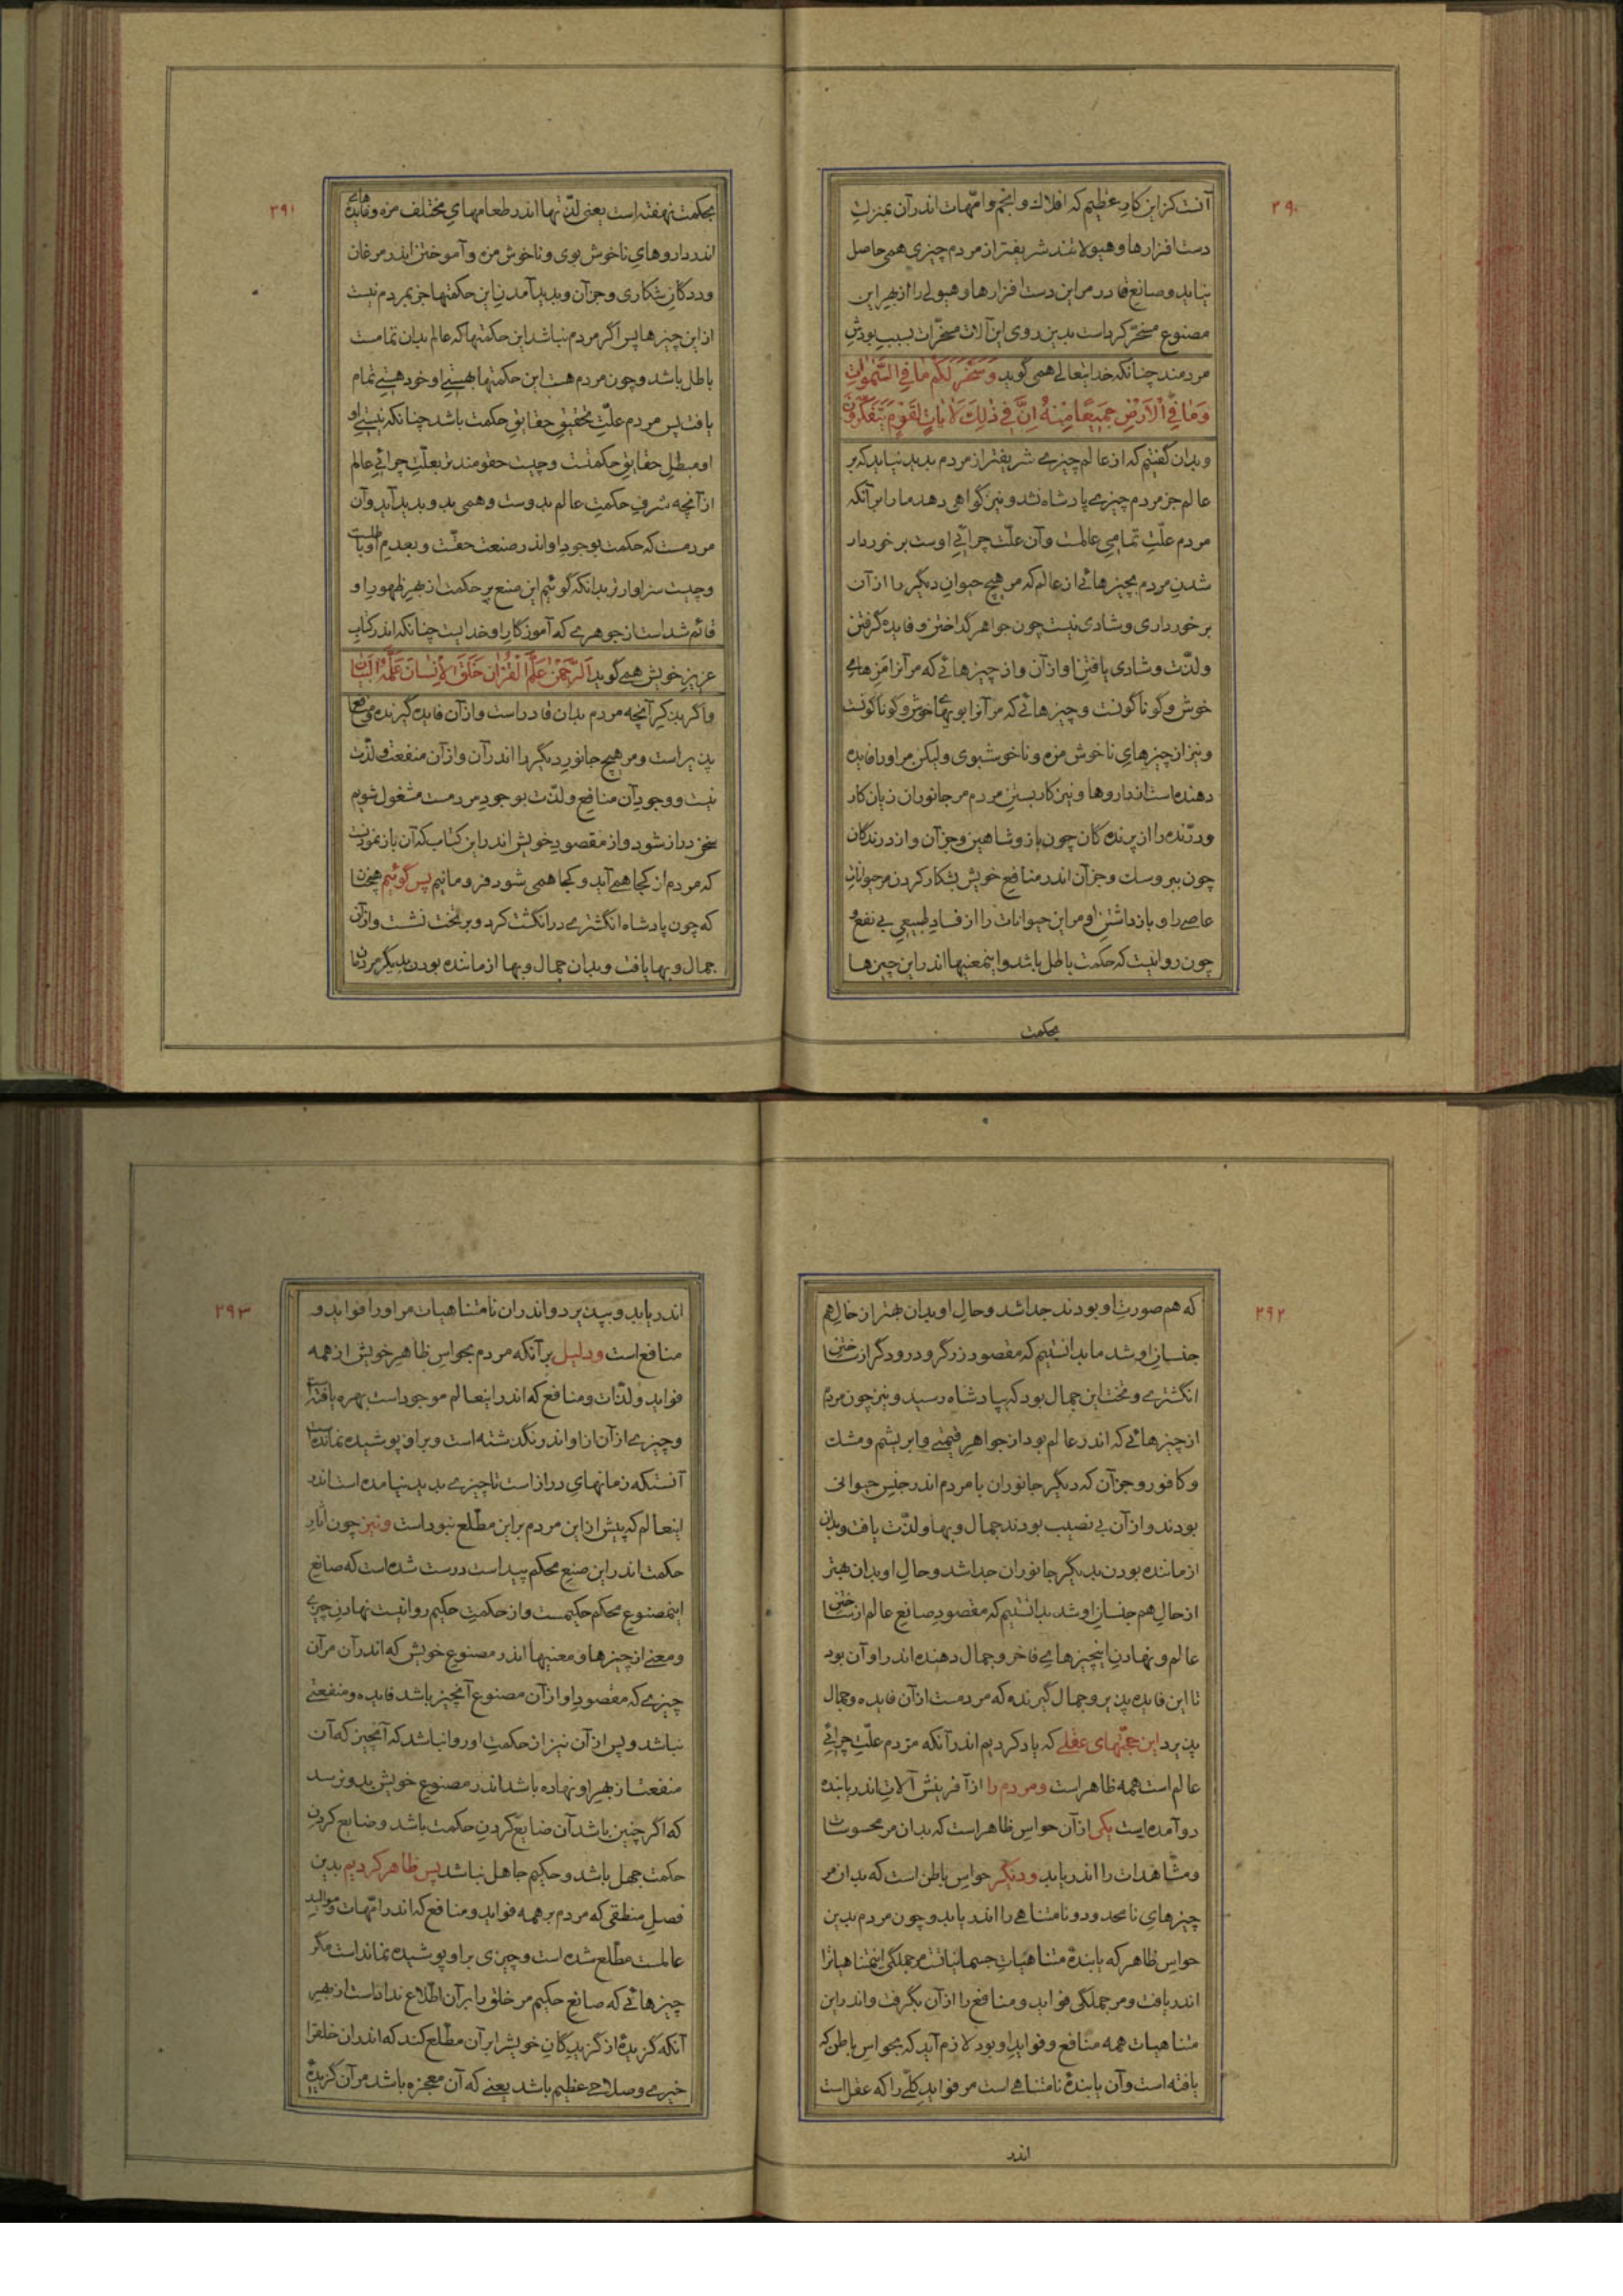 ۲۹۰
آنست کزین کار عظیم که افلاک و انجم و امّهات اندر آن بمنزلتِ
دست افزارها و هیولااند شریفتر از مردم چیزی همی حاصل
نیاید و صانع قادر مر این دست افزارها و هیولی را از بهرِ این
مصنوع مسخّر کرد است بدین روی این آلات مسخّرات بسببِ بودشِ
مردمند چنانکه خدایتعالی همی گوید وَسَخَّرَ لَكُمْ مٰا فِی السَّمٰوٰاتِ
وَمٰا فِی الْاَرْضِ جَمیعًا مِنْهُ اِنَّ فی ذٰلِكَ لَاٰیٰاتٍ لِقَوْمٍ یَتَفَكَّرُونَ
و بدان گفتیم که از عالم چیزی شریفتر از مردم پدید نیاید که بر
عالم جز مردم چیزی پادشاه نشد و نیز گواهی دهد ما را بر آنکه
مردم علّتِ تمامیِ عالمست و آن علّت چرائیِ اوست برخوردار
شدنِ مردم بچیزهائی از عالم که مر هیچ حیوانِ دیگر را از آن
برخورداری و شادی نیست چون جواهر گداختن و فایده گرفتن
و لذّت و شادی یافتنِ او از آن و از چیزهائی که مر آنرا مزهای
خوش و گوناگونست و چیزهائی که مر آنرا بویهای خوش و گوناگونست
و نیز از چیزهایِ ناخوش مزه و ناخوشبوی ولیکن مر او را فایده
دهنده است از داروها و نیز کار بستنِ مردم مر جانوران زیان کار
و درّنده را از پرنده کان چون باز و شاهین و جز آن و از درندگان
چون ببر و سک و جز آن اندر منافع خویش بشکار کردن مر حیواناتِ
عاصی را و باز داشتنِ او مر این حیوانات را از فسادِ طبیعیِ بی نفع و
چون روا نیست که حکمت باطل باشد و اینمعنیها اندر این چیزها
بحکمت
۲۹۱
بحکمت نهفته است یعنی لذّتها اندر طعامهایِ مختلف مزه و فایده هائی
اندر داروهایِ ناخوش بوی و ناخوش مزه و آموختن اندر مرغان
و ددکانِ شکاری و جز آن و پدید آمدنِ این حکمتها جز بمردم نیست
از این چیزها پس اگر مردم نباشد این حکمتها که عالم بدان تمامست
باطل باشد و چون مردم هست این حکمتها بهستیِ او خود هستیِ تمام
یافت پس مردم علّتِ تحقیقِ حقایقِ حکمت باشد چنانکه نیستیِ او
او مبطلِ حقایقِ حکمتست و چیست حقومندتر بعلّتِ چرائیِ عالم
از آنچه شرفِ حکمتِ عالم بدوست و همی بدو پدید آید و آن
مردمست که حکمت بوجودِ او اندر صنعت حقّست و بعدمِ او باطلست
و چیست سزاوارتر بدانکه گوئیم این صنع پر حکمت از بهرِ ظهورِ او
قائم شد است از جوهری که آموزگارِ او خدایست چنانکه اندر کتابِ
عزیزِ خویش همی گوید اَلرَّحْمٰنُ عَلَّمَ الْقُرْاٰنَ خَلَقَ الْاِنْسٰانَ عَلَّمَهُ الْبَیٰانَ
و اگر بذکرِ آنچه مردم بدان قادر است و از آن فایده گیرنده و منافع
پذیر است و مر هیچ جانور دیگر را اندر آن و از آن منفعت و لذّت
نیست و وجودِ آن منافع و لذّت بوجودِ مردمست مشغول شویم
سخن دراز شود و از مقصودِ خویش اندر این کتاب که آن باز نمودنست
که مردم از کجا همی آید و کجا همی شود فرومانیم پس گوئیم همچنان
که چون پادشاه انگشتری در انگشت کرد و بر تخت نشست و از آن
جمال و بها یافت و بدان جمال و بها از ماننده بودن بدیگر مردمان
۲۹۲
که هم صورتِ او بودند جدا شد و حالِ او بدان بهتر از حالِ هم
جنسانِ او شد ما بدانستیم که مقصود زرگر و درودگر از ساختنِ
انگشتری و تخت این جمال بود که بپادشاه رسید و نیز چون مردم
از چیزهائی که اندر عالم بود از جواهرِ قیمتی و ابریشم و مشک
و کافور و جز آن که دیگر جانوران با مردم اندر جنسِ حیوانی
بودند و از آن بی نصیب بودند جمال و بها و لذّت یافت و بدان
از ماننده بودن بدیگر جانوران جدا شد و حالِ او بدان بهتر
از حالِ هم جنسانِ او شد بدانستیم که مقصودِ صانع عالم از ساختنِ
عالم و نهادنِ اینچیزهایِ فاخر و جمال دهنده اندر او آن بود
تا این فایده پذیر و جمال گیرنده که مردمست از آن فایده و جمال
پذیرد این حجّتهای عقلی که یاد کردیم اندر آنکه مردم علّتِ چرائیِ
عالم است همه ظاهر است و مردم را از آفرینش آلاتِ اندر یابنده
دو آمده است یکی از آن حواسِ ظاهر است که بدان مر محسوسات
و مشاهدات را اندر یابد و دیگر حواسِ باطن است که بدان مر
چیزهایِ نامحدود و نامتناهی را اندر یابد و چون مردم بدین
حواسِ ظاهر که یابندهٔ متناهیاتِ جسمانیاتست مر جملگی اینمتناهیاترا
اندر یافت و مر جملگی فواید و منافع را از آن بگرفت و اندر این
متناهیات همه منافع و فوایدِ او بود لازم آید که بحواسِ باطن که
یافته است و آن یابندهٔ نامتناهی است مر فوایدِ کلّی را که عقل است
اندر
۲۹۳
اندر یابد و بپذیرد و اندر آن نامتناهیات مر او را فواید و
منافع است و دلیل بر آنکه مردم بحواسِ ظاهرِ خویش از همه
فواید و لذّات و منافع که اندر اینعالم موجود است بهره یافته است
و چیزی از آن از او اندر نگذشته است و بر او پوشیده نمانده است
آنستکه زمانهایِ دراز است تا چیزی پدید نیامده است اندر
اینعالم که پیش از این مردم بر این مطّلع نبود است و نیز چون آثارِ
حکمت اندر این صنعِ محکم پیداست درست شده است که صانعِ
اینمصنوعِ محکم حکیمست و از حکمتِ حکیم روا نیست نهادنِ چیزی
و معنی از چیزها و معنیها اندر مصنوعِ خویش که اندر آن مر آن
چیزی که مقصودِ او از آن مصنوع آنچیز باشد فایده و منفعتی
نباشد و پس از آن نیز از حکمتِ او روا نباشد که آنچیز که آن
منفعت از بهرِ او نهاده باشد اندر مصنوعِ خویش بدو نرسد
که اگر چنین باشد آن ضایع کردنِ حکمت باشد و ضایع کردنِ
حکمت جهل باشد و حکیم جاهل نباشد پس ظاهر کردیم بدین
فصلِ منطقی که مردم بر همه فواید و منافع که اندر امّهات و موالید
عالمست مطّلع شده است و چیزی بر او پوشیده نماند است مگر
چیزهائی که صانعِ حکیم مر خلق را بر آن اطّلاع نداد است از بهرِ
آنکه گزیدهٔ از گزیدگانِ خویشرا بر آن مطّلع کند که اندر آن خلقرا
خیری و صلاحی عظیم باشد یعنی که آن معجزه باشد مر آن گزیدهٔ